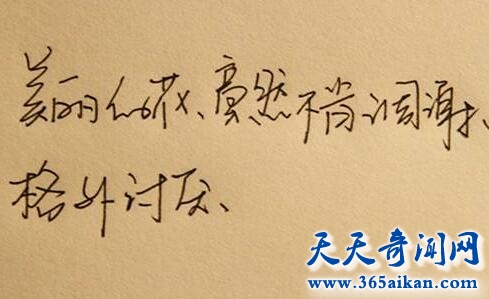 美丽的花、竟然不肯凋谢、
格外讨厌、
天天奇闻网
www.365aikan.com